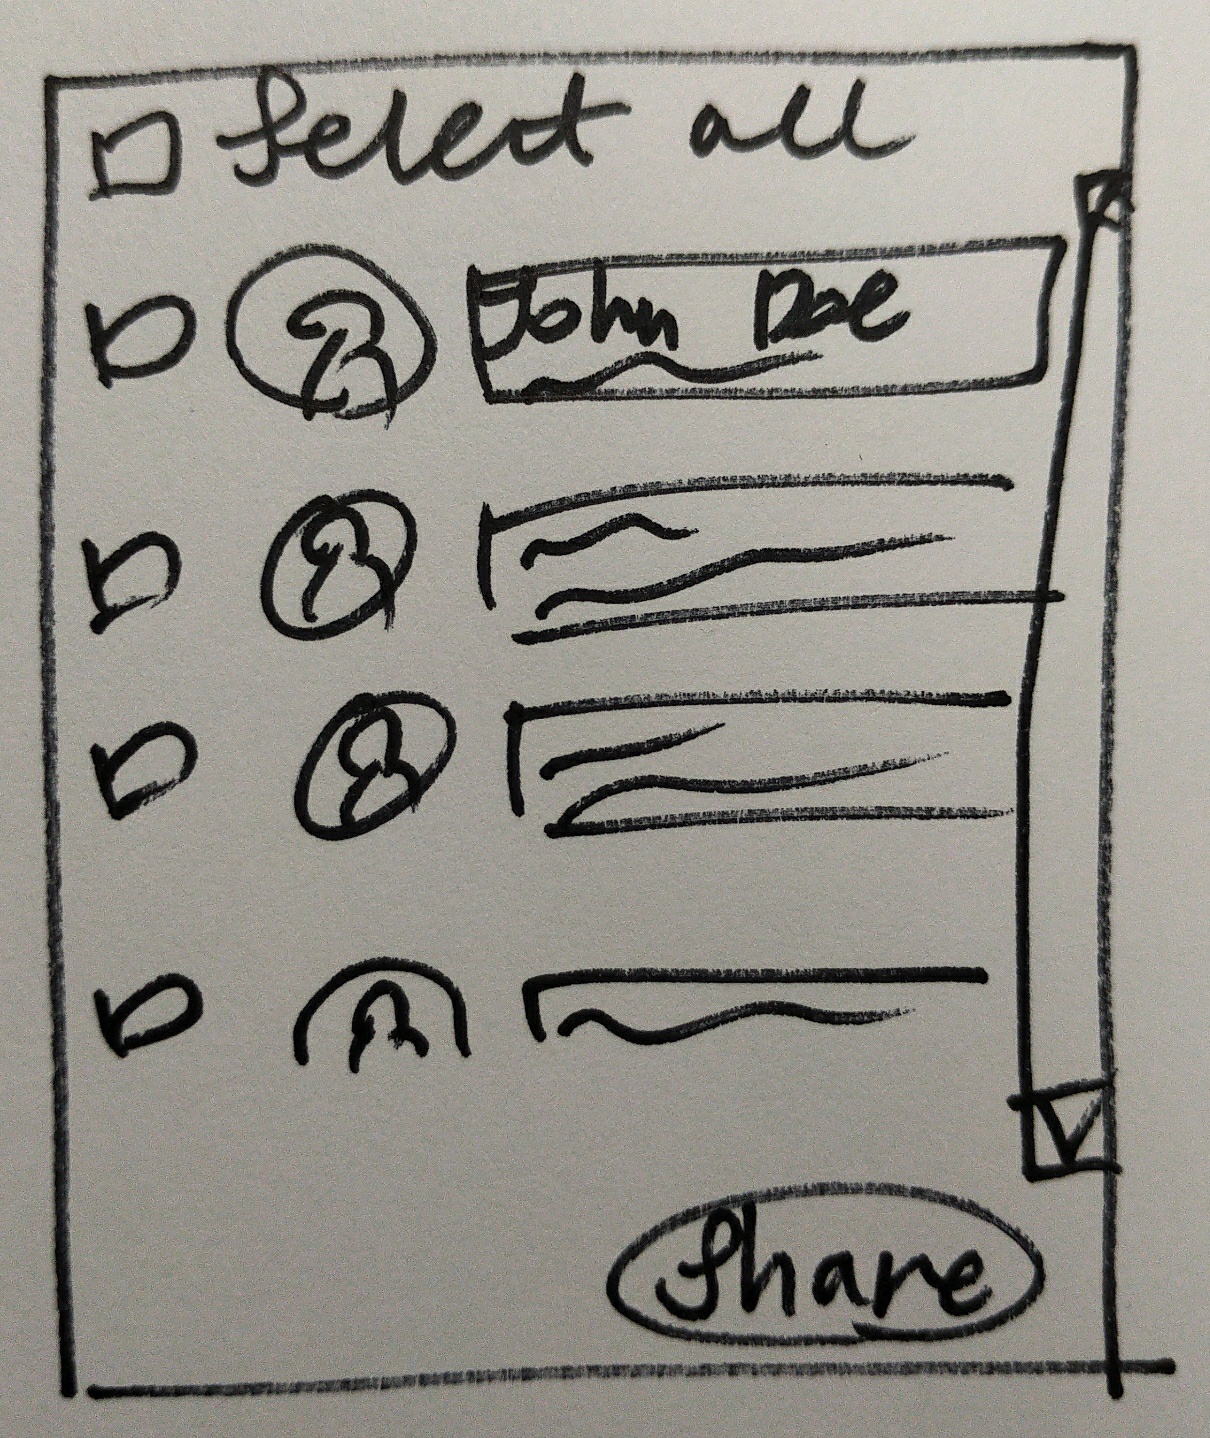 Select all
John Doe
Share